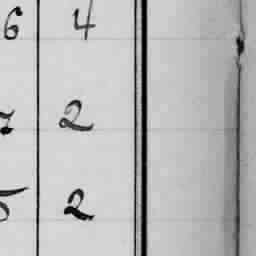 6 4
7 2
5 2